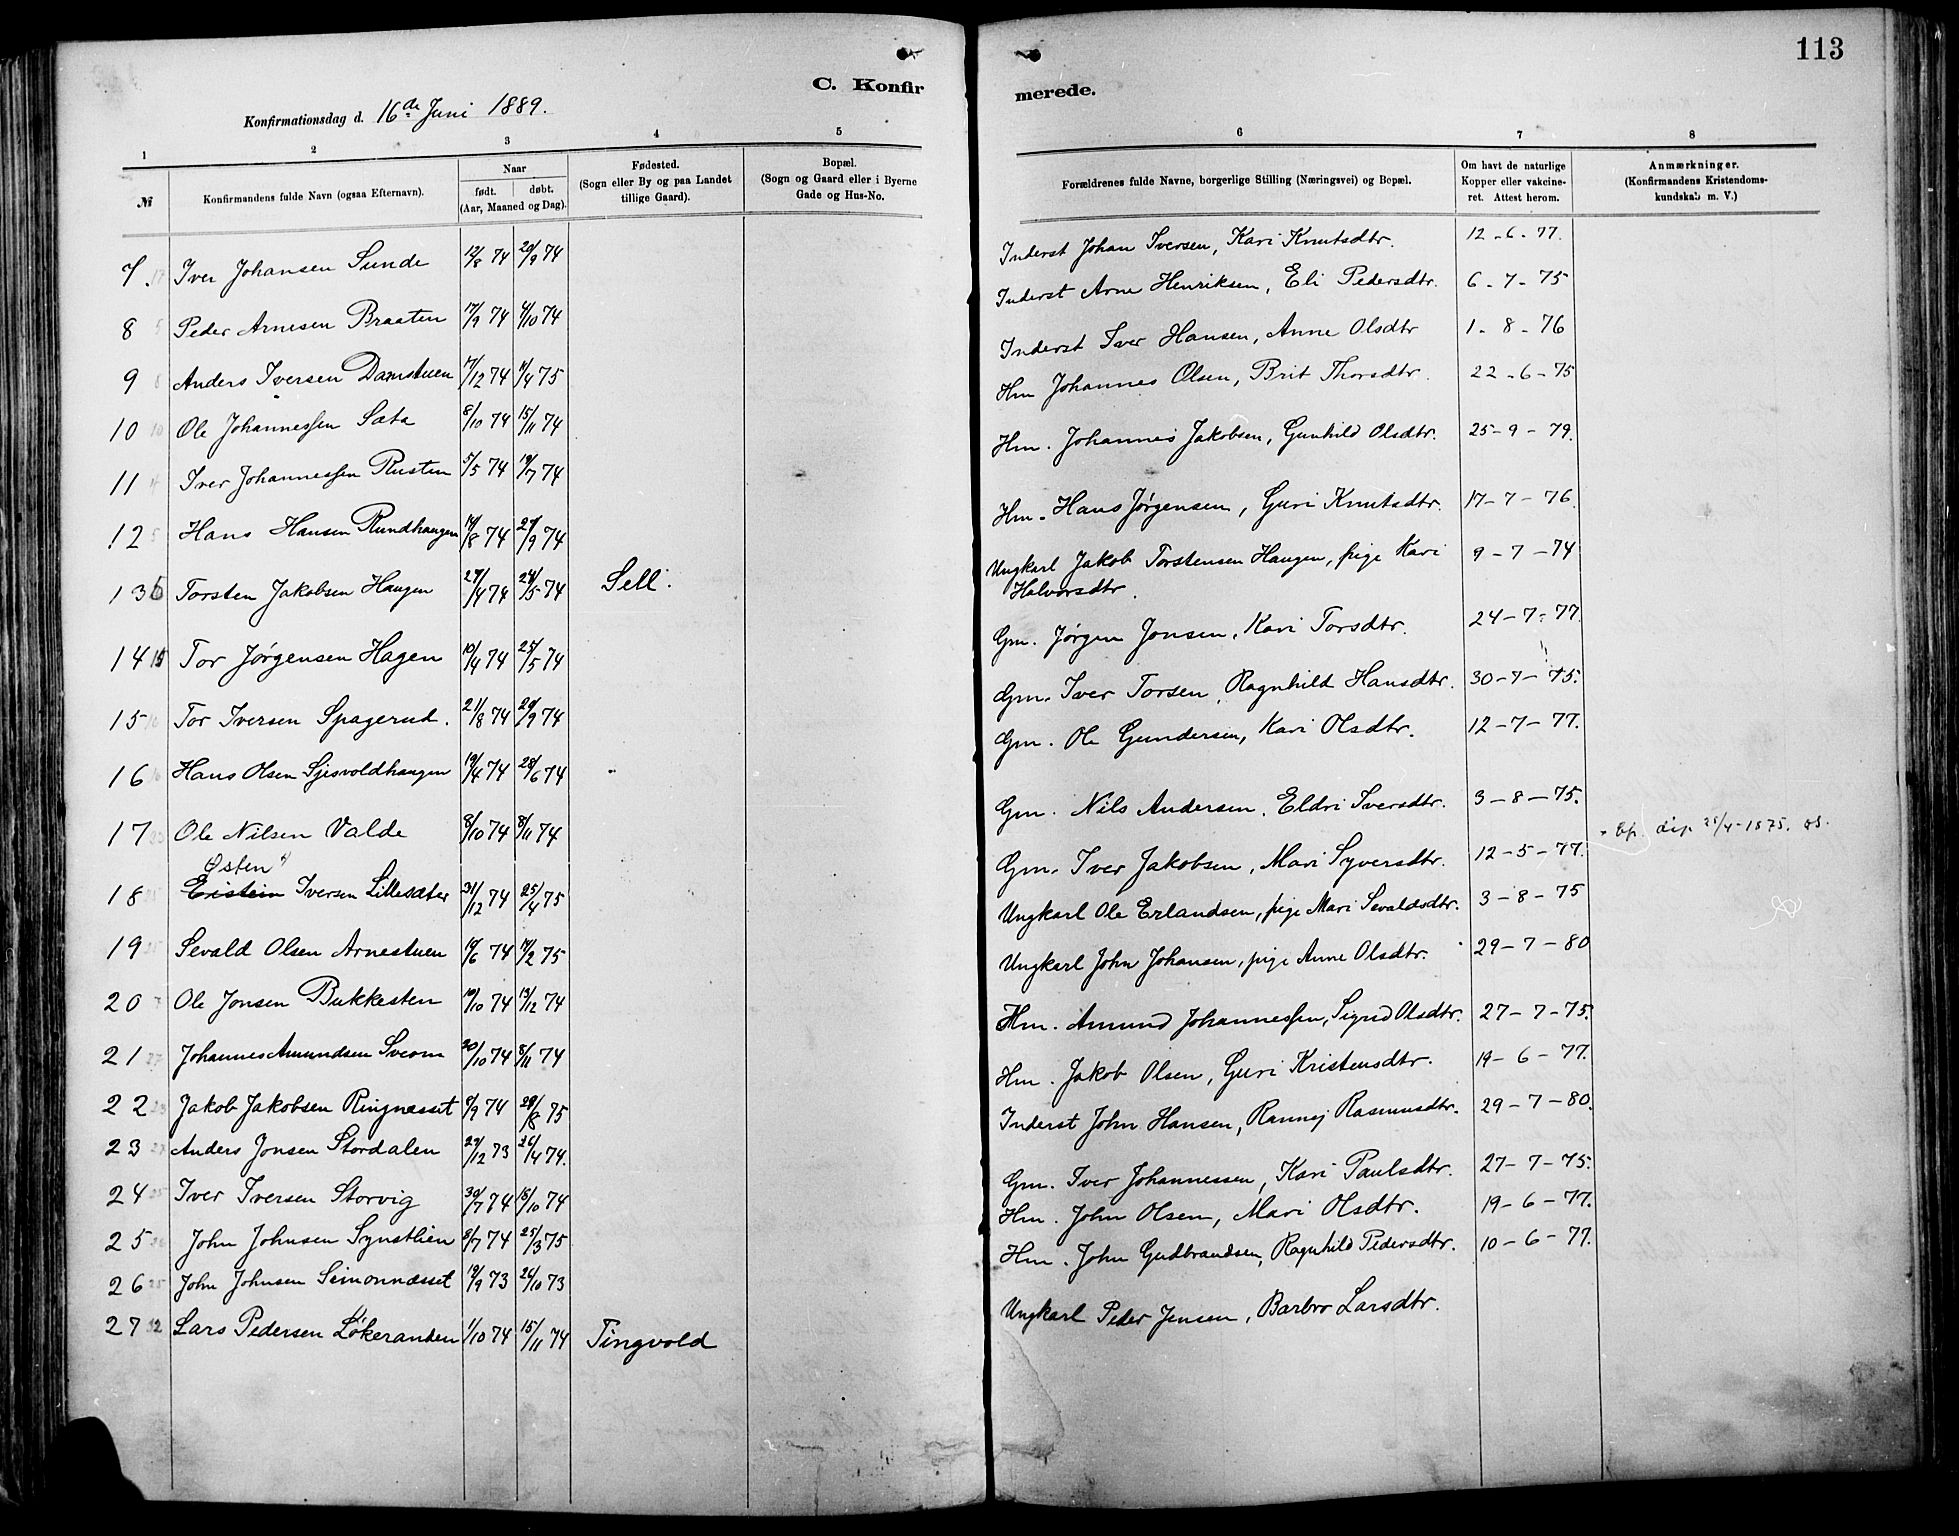 113
C. Konfirmerede.
Konfirmationsdag d. 16de Juni 1889.
1 2 3 4 5 6 7 8
№
Konfirmandens fulde Navn (ogsaa Efternavn).
Naar
født. døbt.
(Aar, Maaned og Dag).
Fødested.
(Sogn eller By og paa Landet
tillige Gaard).
Bopæl.
(Sogn og Gaard eller i Byerne
Gade og Hus-No.
Forældrenes fulde Navne, borgerlige Stilling (Næringsvei) og Bopæl.
Om havt de naturlige
Kopper eller vakcine-
ret. Attest herom.
Anmærkninger.
(Konfirmandens Kristendoms-
kundskab m. V.)
7. Iver Johansen Sunde 12/8 74 20/9 74 Inderst Johan Iversen, Kari Knutsdtr. 12-6-77.
8 Peder Arnesen Braaten 17/9 74 4/10 74 Inderst Arne Henriksen, Eli Pedersdtr. 6-7-75
9 Anders Iversen Damstuen 17/12 74 11/4 75 Inderst Iver Hansen, Anne Olsdtr 1-8-76
10 Ole Johannessen Sæta 8/10 74 15/11 74 Hm Johannes Olsen, Brit Thorsdtr. 22-6-75
11 Iver Johannessen Rusten 5/5 74 19/7 74 Hm. Johannes Jakobsen, Gunhild Olsdtr. 25-9-79.
12 Hans Hansen Rundhaugen 14/8 74 27/9 74 Hm. Hans Jørgensen, Guri Knutsdtr. 17-7-76.
13 Torsten Jakobsen Haugen 29/4 74 24/5 74 Sell. Ungkarl Jakob Torstensen Haugen, pige Kari
Halvorsdtr. 9-7-74
14 Tor Jørgensen Hagen 10/4 74 25/5 74 Gm. Jørgen Jonsen, Kari Torsdtr. 24-7-77.
15 Tor Iversen Spagerud. 21/8 74 20/9 74 Gm. Iver Torsen, Ragnhild Hansdtr. 30-7-75.
16 Hans Olsen Sjisvoldhaugen 19/4 74 28/6 74 Gm. Ole Gundersen, Kari Olsdtr. 12-7-77.
17 Ole Nilsen Valde 8/10 74 8/11 74 Gm. Nils Andersen, Eldri Iversdtr. 3-8-75.
Østen
18 Eristein Iversen Lillesæter 31/12 74 25/4 75 Gm. Iver Jakobsen, Mari Syversdtr. 12-5-77. dip 25/4-1875.
19 Sevald Olsen Arnestuen 19/6 74 14/2 75 Ungkarl Ole Erlandsen, pige Mari Sevaldsdtr. 3-8-75
20 Ole Jonsen Bukkesten 10/10 74 13/12 74 Ungkarl John Johansen, pige Anne Olsdtr. 29-7-80
21 Johannes Amundsen Sveom 20/10 74 8/11 74 Hm. Amund Johannessen, Sigrid Olsdtr. 27-7-75.
22 Jakob Jakobsen Ringnæsset 9/9 74 29/8 75 Hm. Jakob Olsen, Guri Kristensdtr. 19-6-77.
23 Anders Jonsen Stordalen 29/12 73 26/4 74. Inderst John Hansen, Rannej Rasmusdtr. 29-7-80.
24 Iver Iversen Storvig 30/7 74 18/10 74 Gm. Iver Johannessen, Kari Paulsdtr. 27-7-75.
25 John Johnsen Synstlien 8/7 74 25/3 75 Hm. John Olsen, Mari Olsdtr. 19-6-77.
26 John Johnsen Simonnæsset 19/9 73 26/10 73 Hm. John Gudbrandsen, Ragnhild Pedersdtr. 10-6-77.
27 Lars Pedersen Løkeranden 1/10 74 15/11 74 Tingvold Ungkarl Peder Jensen, Barbro Larsdtr.